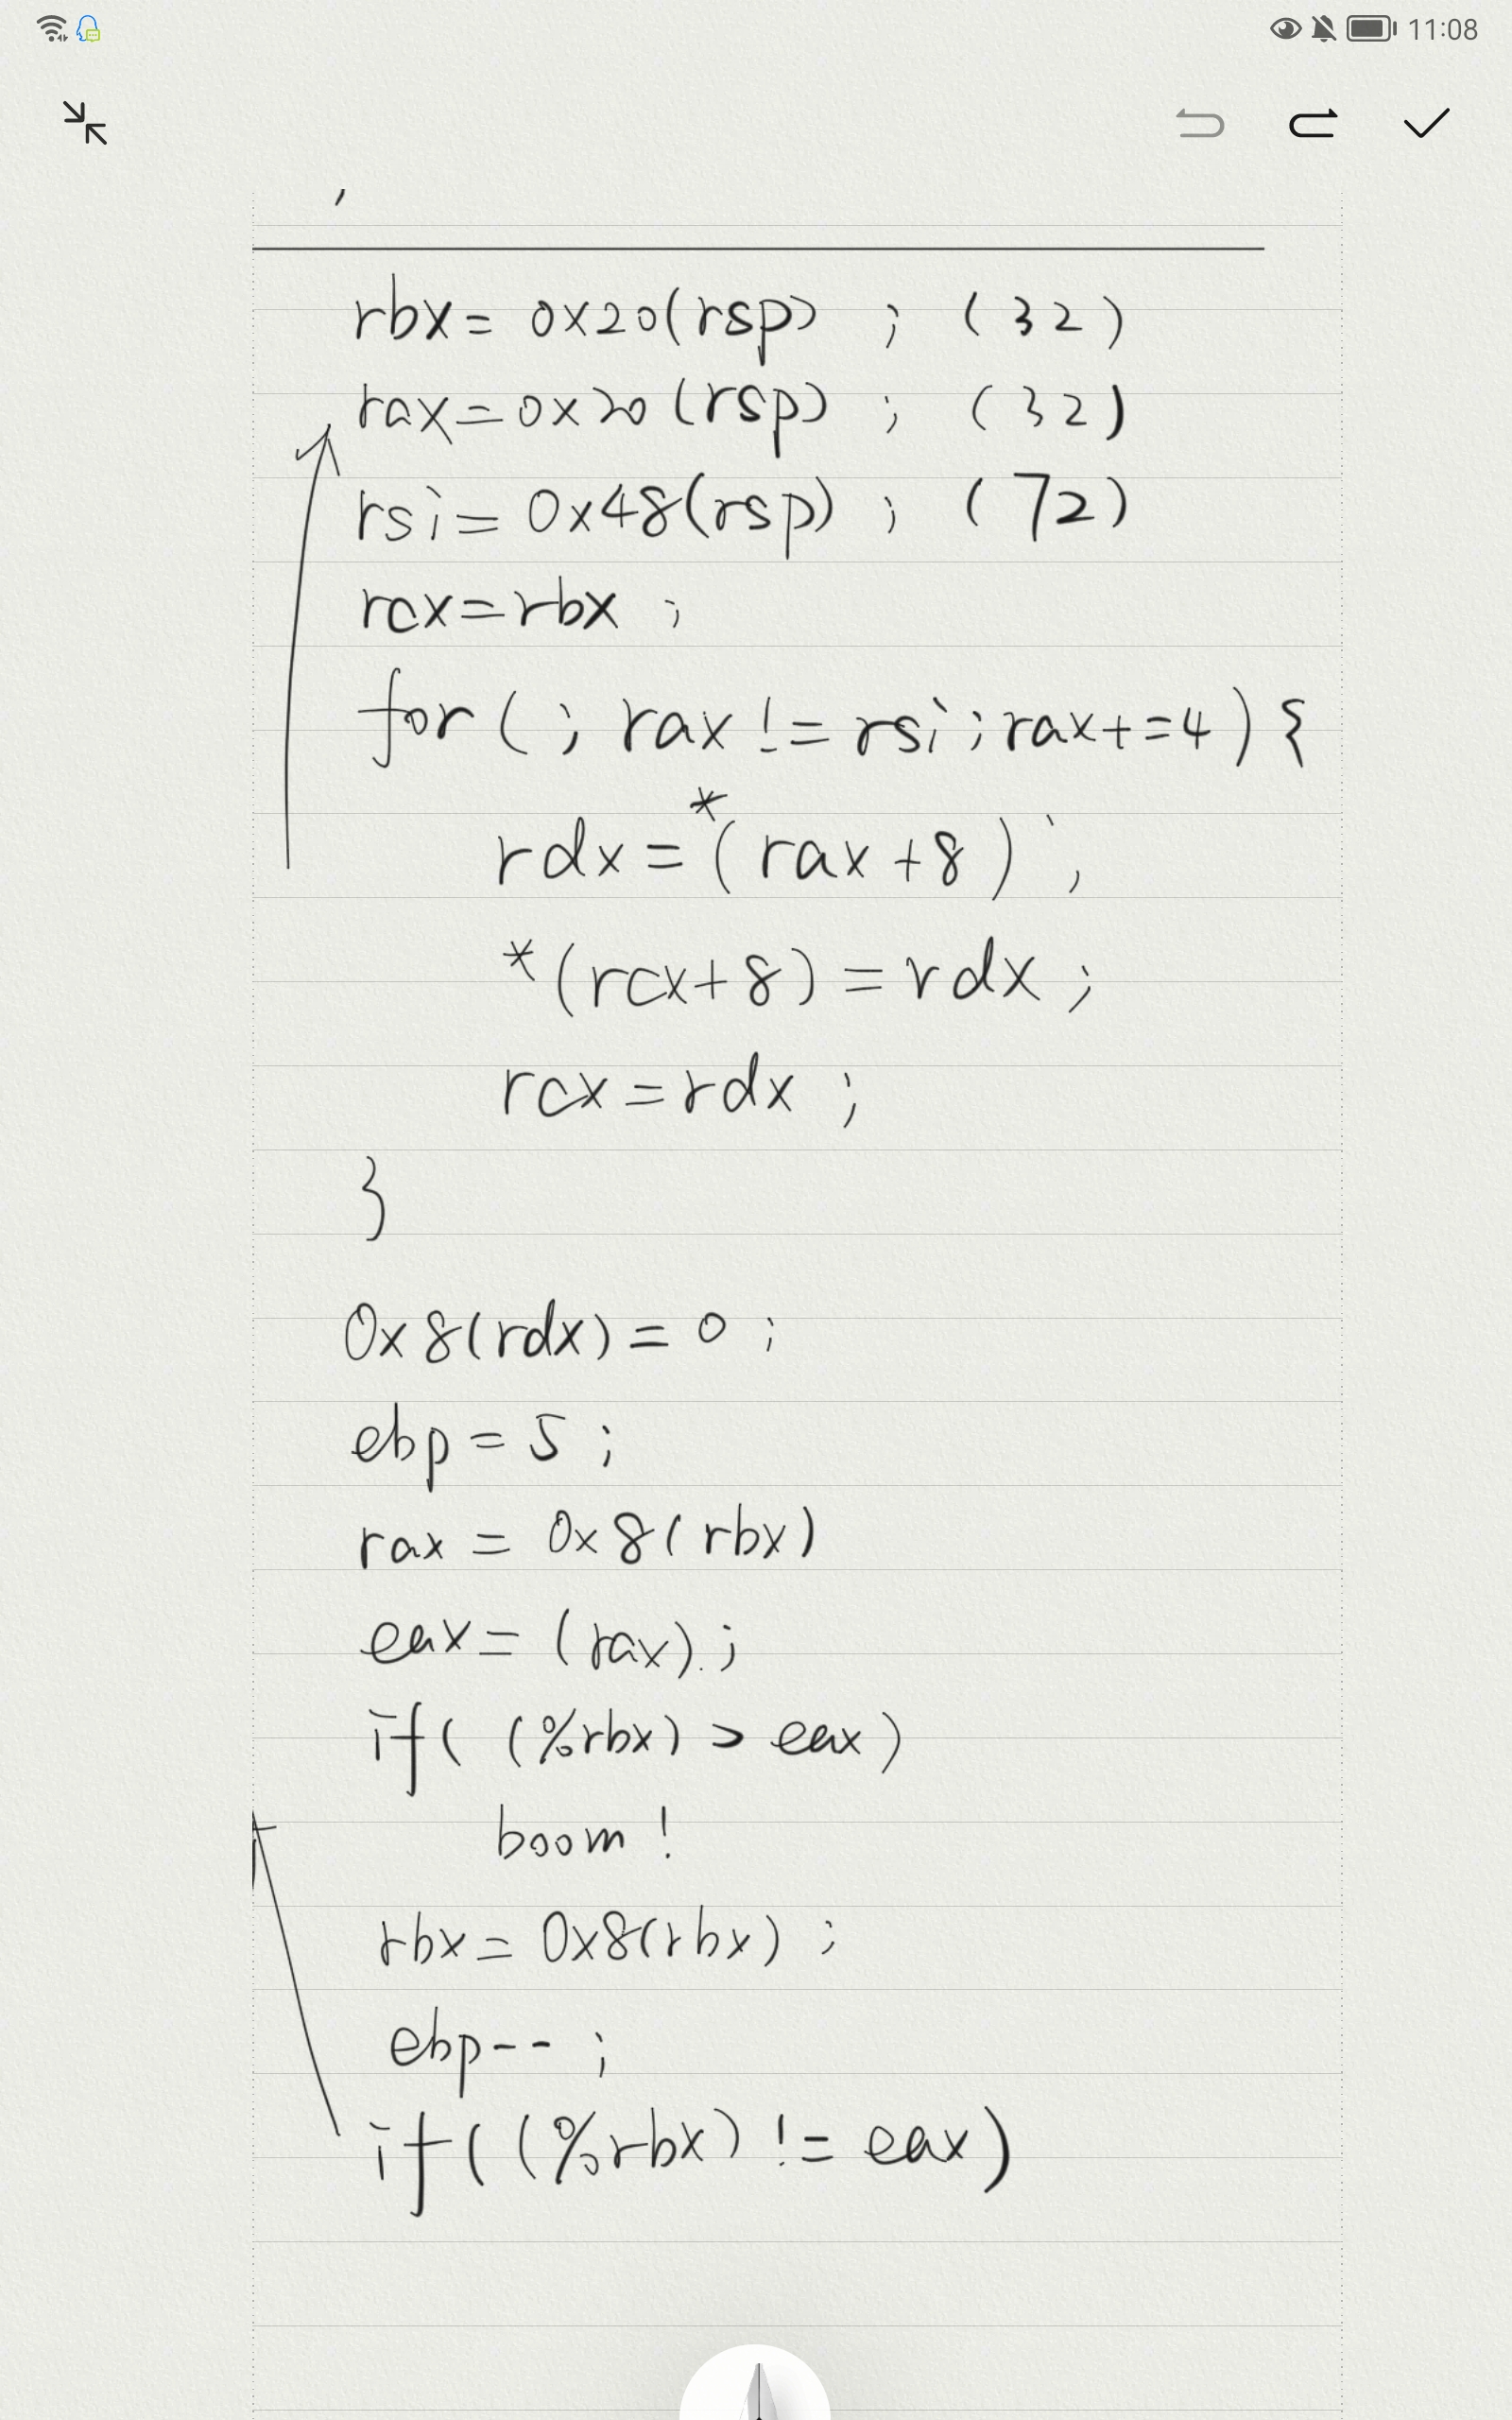 11:08
,
rbx = 0x20(rsp) ; (32)
rax = 0x20(rsp) ; (32)
rsi = 0x48(rsp) ; (72)
rcx = rbx ;
for( ; rax != rsi ; rax+=4) {
rdx = *(rax+8) ;
*(rcx+8) = rdx ;
rcx = rdx ;
}
0x8(rdx) = 0 ;
ebp = 5 ;
rax = 0x8(rbx)
eax = (rax) ;
if( (%rbx) > eax)
boom !
rbx = 0x8(rbx) ;
ebp-- ;
if( (%rbx) != eax)